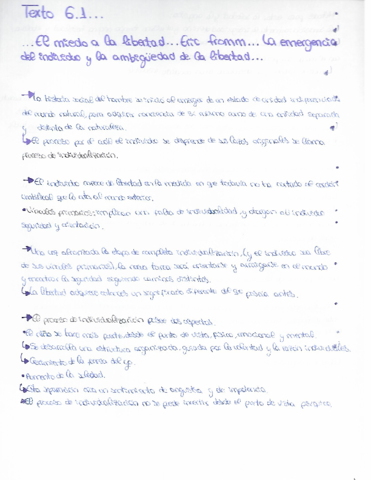 Texto 6.1...
...El miedo a la libertad...Eric fromm... La emergencia
del individuo y la ambigüedad de la libertad...
→ La historia social del hombre se inicia al emerger de un estado de unidad indiferenciada
del mundo natural, para adquirir conciencia de sí mismo como de una entidad separada
y distinta de la naturaleza.
↳ El proceso por el cual el individuo se desprende de sus lazos originales se llama
proceso de individualización.
→ El individuo carece de libertad en la medida en que todavía no ha cortado el cordón
umbilical que lo ata al mundo exterior.
• Vínculos primarios: implican una falta de individualidad y otorgan al individuo
seguridad y orientación.
→ Una vez alcanzada la etapa de completa individualización, (y el individuo sea libre
de sus vínculos primarios), la nueva tarea será orientarse y arraigarse en el mundo
y encontrar la seguridad siguiendo caminos distintos.
↳ La libertad adquiere entonces un significado diferente del que poseía antes.
→ El proceso de individualización posee dos aspectos:
• El niño se hace más fuerte desde el punto de vista físico, emocional y mental.
↳ Se desarrolla una estructura organizada, guiada por la voluntad y la razón individuales.
↳ Crecimiento de la fuerza del yo.
• Aumento de la soledad.
↳ Esta separación crea un sentimiento de angustia y de impotencia.
• El proceso de individualización no se puede invertir desde el punto de vista psíquico.